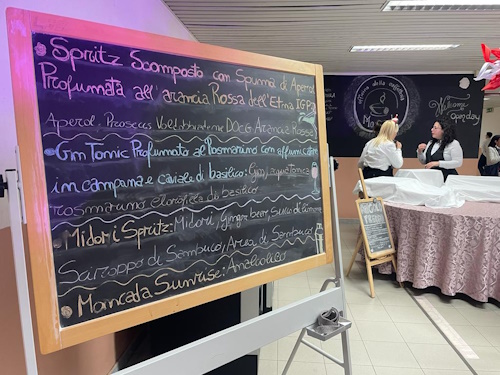 Spritz Scomposto con Spuma di Aperol
Profumata all'arancia Rossa dell'Etna IGP
Aperol, Prosecco Valdobbiadene DOCG Arancia Rossa
Gin Tonic Profumato al Rosmarino con affumicatura
in campana e caviale di basilico: Gin, aqua Tonica
rosmarino clorofilla di basilico
Midori Spritz: Midori, Ginger beer, Succo di limone
Sciroppo di Sambuco, Aria di Sambuco
Moncada Sunrise: Analcolico
Welcome
Open day